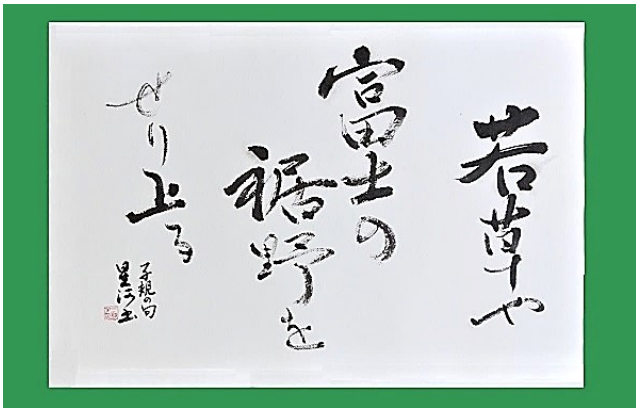 若草や
富士の
裾野を
せり上る
子規の句
星河書